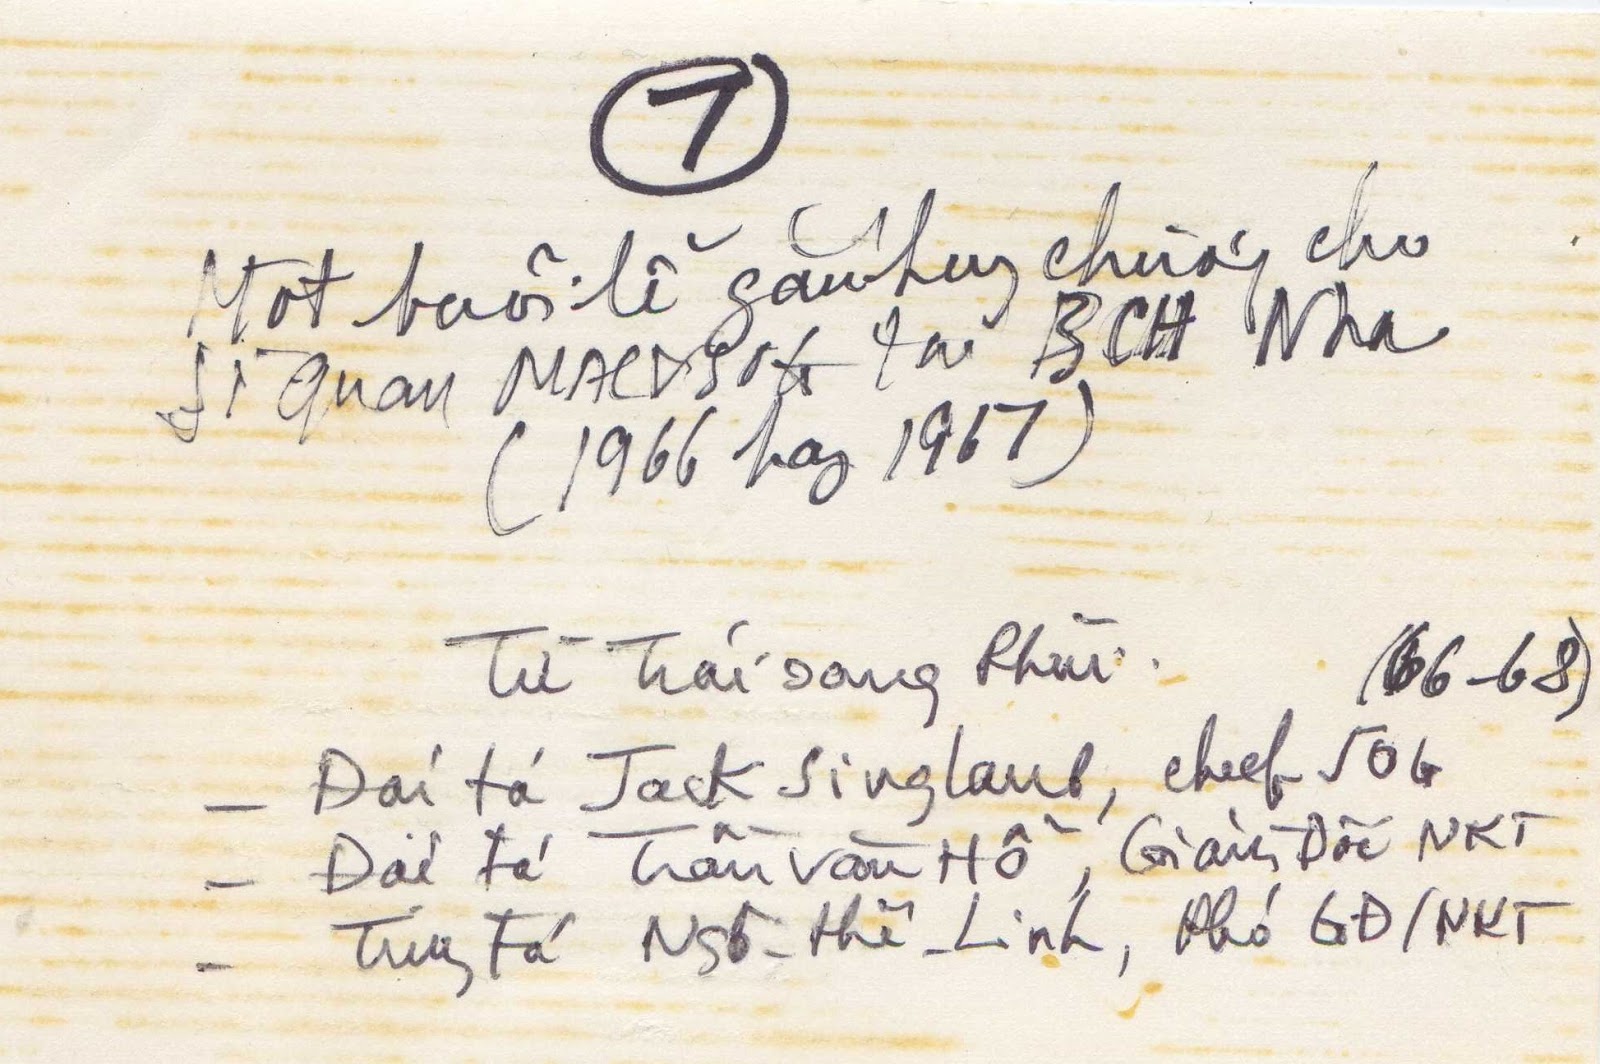 7
Một buổi lễ gắn huy chương cho
sĩ quan MACVSOG tại BCH Nha
(1966 hay 1967)
Từ trái sang phải. (66-68)
- Đại tá Jack Singlaub, chief SOG
- Đại tá Trần Văn Hổ, Giám Đốc NKT
- Trung tá Ngô-thế-Linh, Phó GĐ/NKT